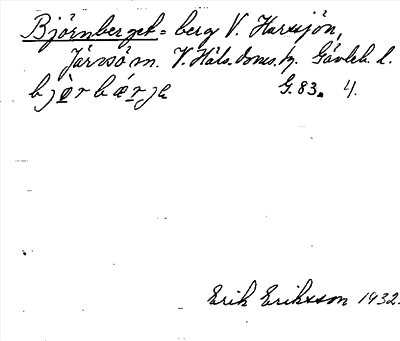 Björnberget = berg V. Harssjön,
Järvsö sn. V. Häls. doms. hg. Gävleb. l.
bjö̀rbærje G. 83. 4.
Erik Eriksson 1932.